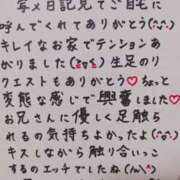 写メ日記見てご自宅に
呼んでくれてありがとう(^^)
キレイなお家でテンションあ
がりました(^o^)生足のリ
クエストもありがとう♡ちょっと
変態な感じで興奮しました♡
お兄さんに優しく足触ら
れるの気持ちよかったよ(^^)
キスしながら触り合いっこ
するのエッチでしたね(^^)